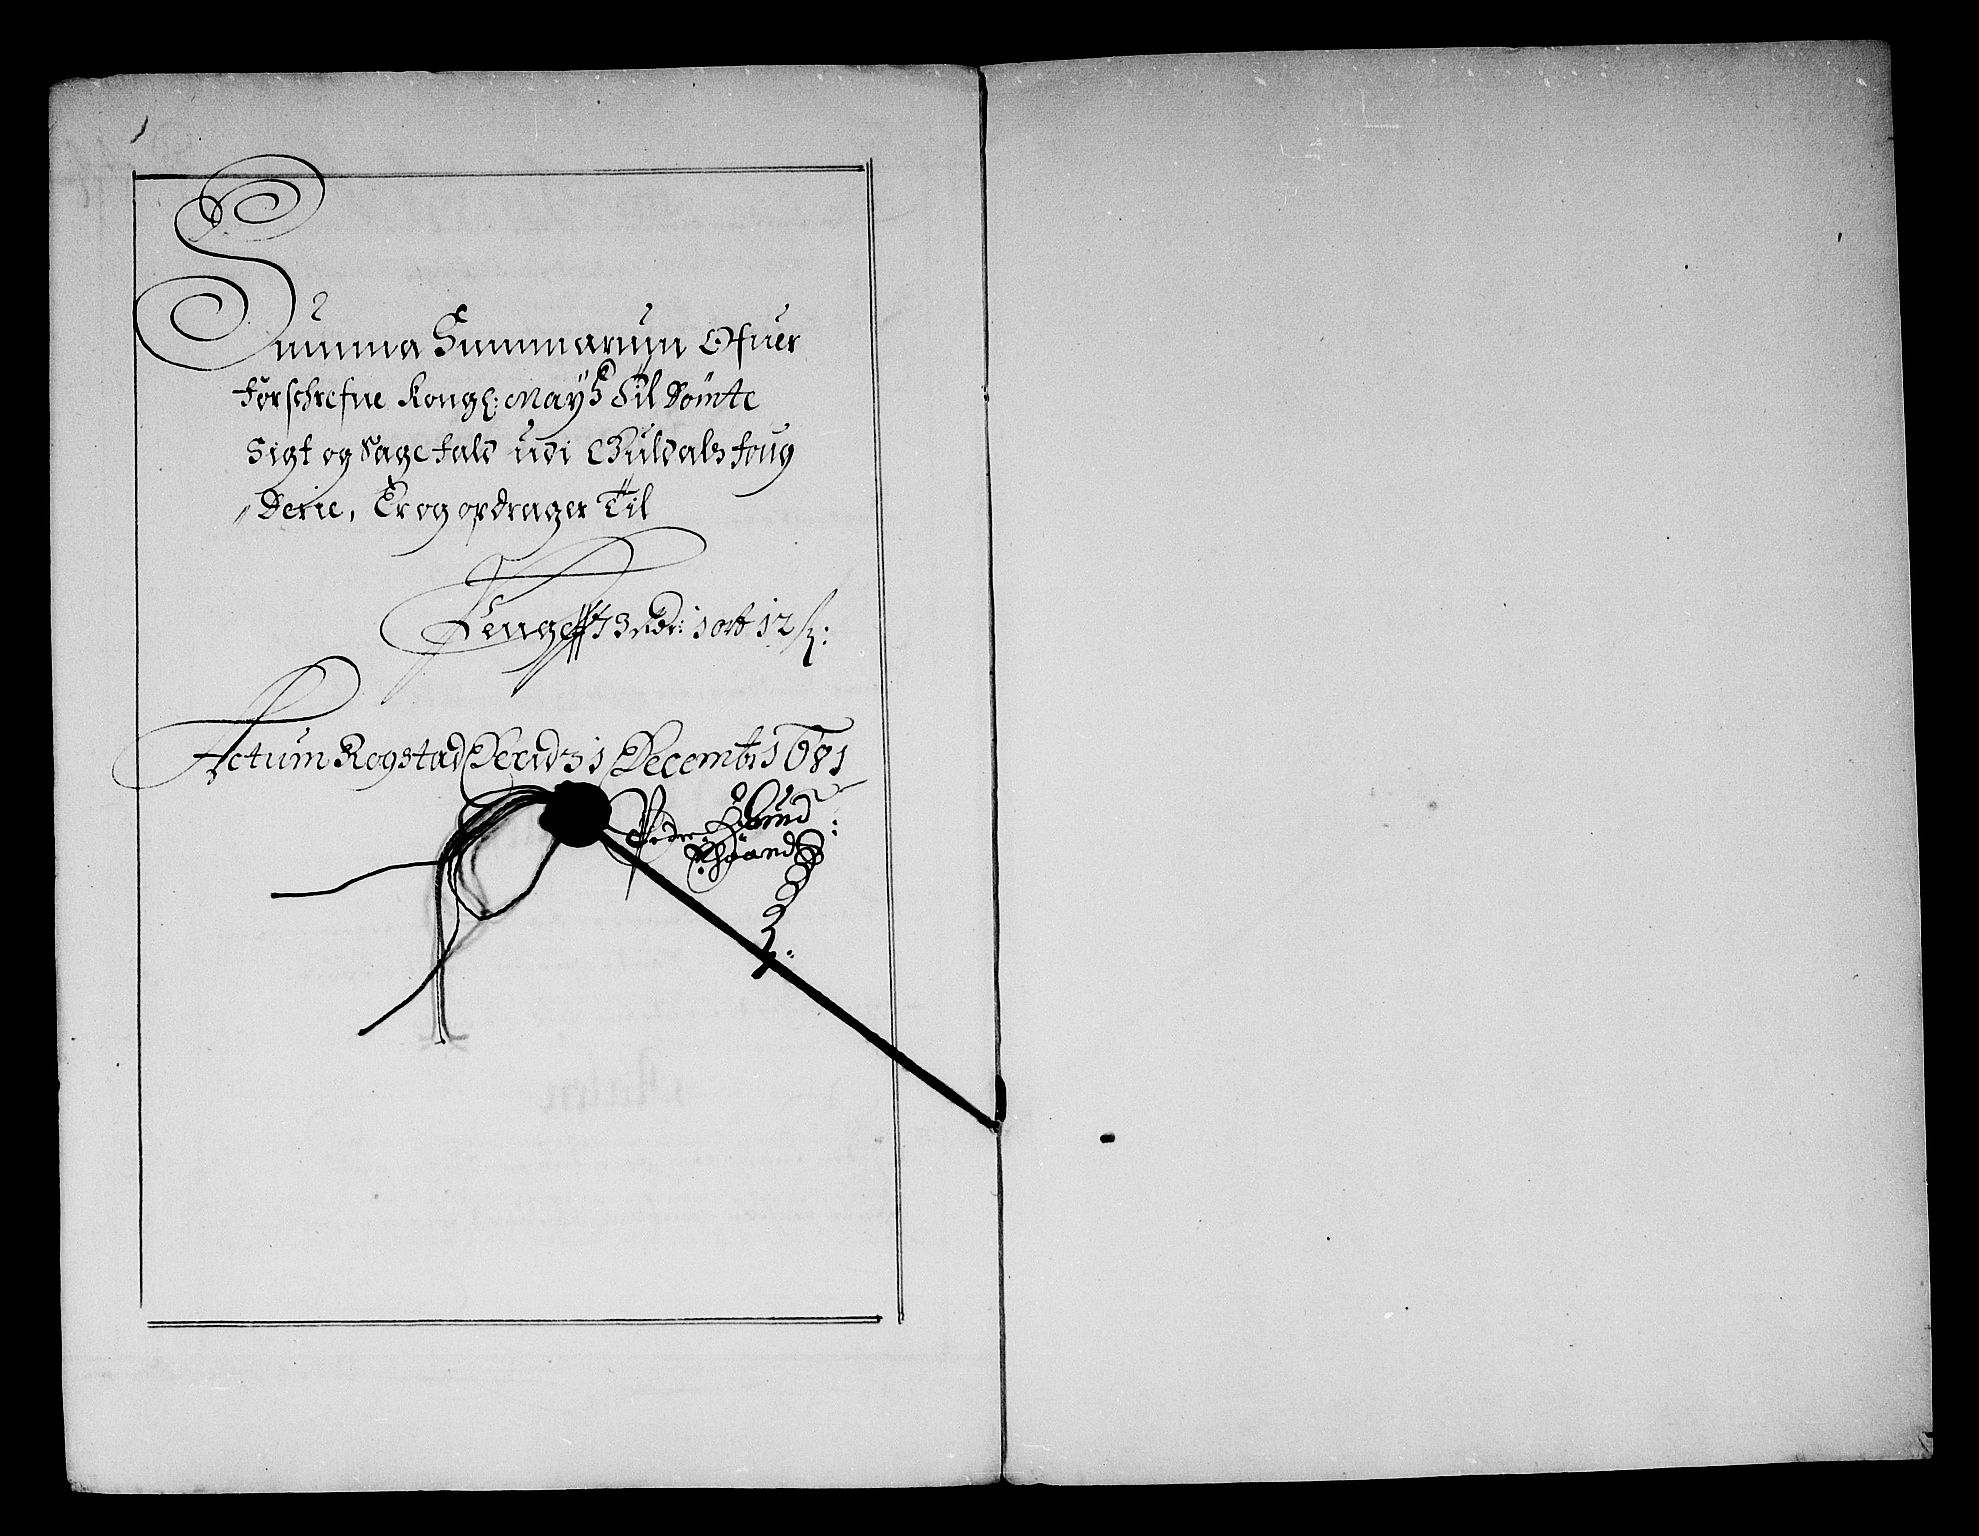 Summa Summarum Ofuer
forschrefne Kongl: Mayts Til Dömte
Sigt og Sagefald udi Guldals foug
„Derie, Er og opdrager Til
Penge 73 Rdr: 1 ort 12 s:
Actum Rogstad Den 31 Decembr 1681
Peder